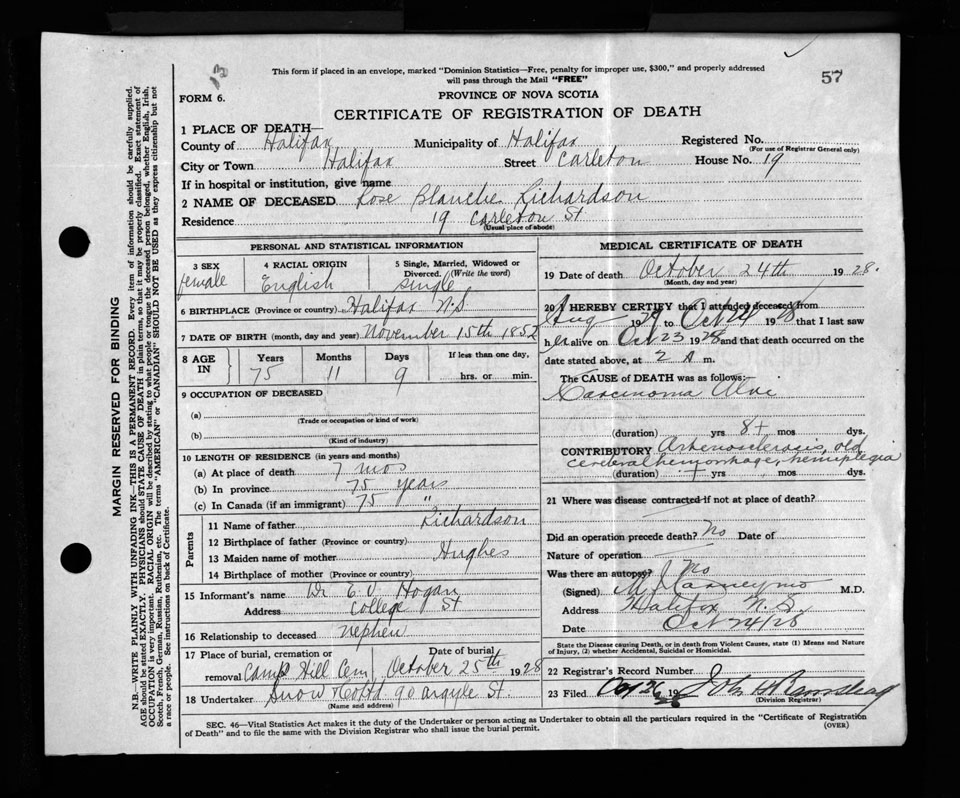 This form if placed in an envelope, marked "Dominion Statistics—Free, penalty for improper use, $300," and properly addressed
will pass through the Mail "FREE"
57
FORM 6.
PROVINCE OF NOVA SCOTIA
CERTIFICATE OF REGISTRATION OF DEATH
1 PLACE OF DEATH—
County of Halifax Municipality of Halifax Registered No.
(For use of Registrar General only)
City or Town Halifax Street Carleton House No. 19
If in hospital or institution, give name
2 NAME OF DECEASED Rose Blanche Richardson
Residence 19 Carleton St
(Usual place of abode)
PERSONAL AND STATISTICAL INFORMATION
3 SEX 4 RACIAL ORIGIN 5 Single, Married, Widowed or
Divorced. (Write the word)
female English single
6 BIRTHPLACE (Province or country) Halifax N.S.
7 DATE OF BIRTH (month, day and year) November 15th 1852
8 AGE IN Years Months Days If less than one day,
75 11 9 hrs. or min.
9 OCCUPATION OF DECEASED
(a)
(Trade or occupation or kind of work)
(b)
(Kind of industry)
10 LENGTH OF RESIDENCE (in years and months)
(a) At place of death 7 mos
(b) In province 75 years
(c) In Canada (if an immigrant) 75 "
Parents
11 Name of father Richardson
12 Birthplace of father (Province or country)
13 Maiden name of mother Hughes
14 Birthplace of mother (Province or country)
15 Informant's name Dr E V Hogan
Address College St
16 Relationship to deceased nephew
17 Place of burial, cremation or Date of burial
removal Camp Hill Cem October 25th 1928
18 Undertaker Snow 90 Argyle St.
(Name and address)
MEDICAL CERTIFICATE OF DEATH
19 Date of death October 24th 1928.
(Month, day and year)
20 I HEREBY CERTIFY that I attended deceased from
Aug 1928 to Oct 24 1928 that I last saw
her alive on Oct 23 1928 and that death occurred on the
date stated above, at 2 A m.
The CAUSE of DEATH was as follows:—
Carcinoma Alvi
(duration) yrs 8+ mos dys.
CONTRIBUTORY Arteriosclerosis, old
cerebral hemorrhage, hemiplegia
(duration) yrs mos dys.
21 Where was disease contracted if not at place of death?
Did an operation precede death? No Date of
Nature of operation
Was there an autopsy? No
(Signed) M.D.
Address Halifax N.S.
Date Oct 24/28
State the Disease causing Death, or in death from Violent Causes, state (1) Means and Nature
of Injury, (2) whether Accidental, Suicidal or Homicidal.
22 Registrar's Record Number
23 Filed Oct 26 19
(Division Registrar)
SEC. 46—Vital Statistics Act makes it the duty of the Undertaker or person acting as Undertaker to obtain all the particulars required in the "Certificate of Registration
of Death" and to file the same with the Division Registrar who shall issue the burial permit.
(OVER)
MARGIN RESERVED FOR BINDING
N.B.—WRITE PLAINLY WITH UNFADING INK—THIS IS A PERMANENT RECORD. Every item of information should be carefully supplied.
AGE should be stated EXACTLY. PHYSICIANS should STATE CAUSE OF DEATH in plain terms, so that it may be properly classified. Exact statement of
OCCUPATION is very important. RACIAL ORIGIN will be described by stating to what people or tongue the deceased person belonged, whether English, Irish,
Scotch, French, German, Russian, Ruthenian, etc. The terms "AMERICAN" or "CANADIAN" SHOULD NOT BE USED as they express citizenship but not
a race or people. See instructions on back of Certificate.